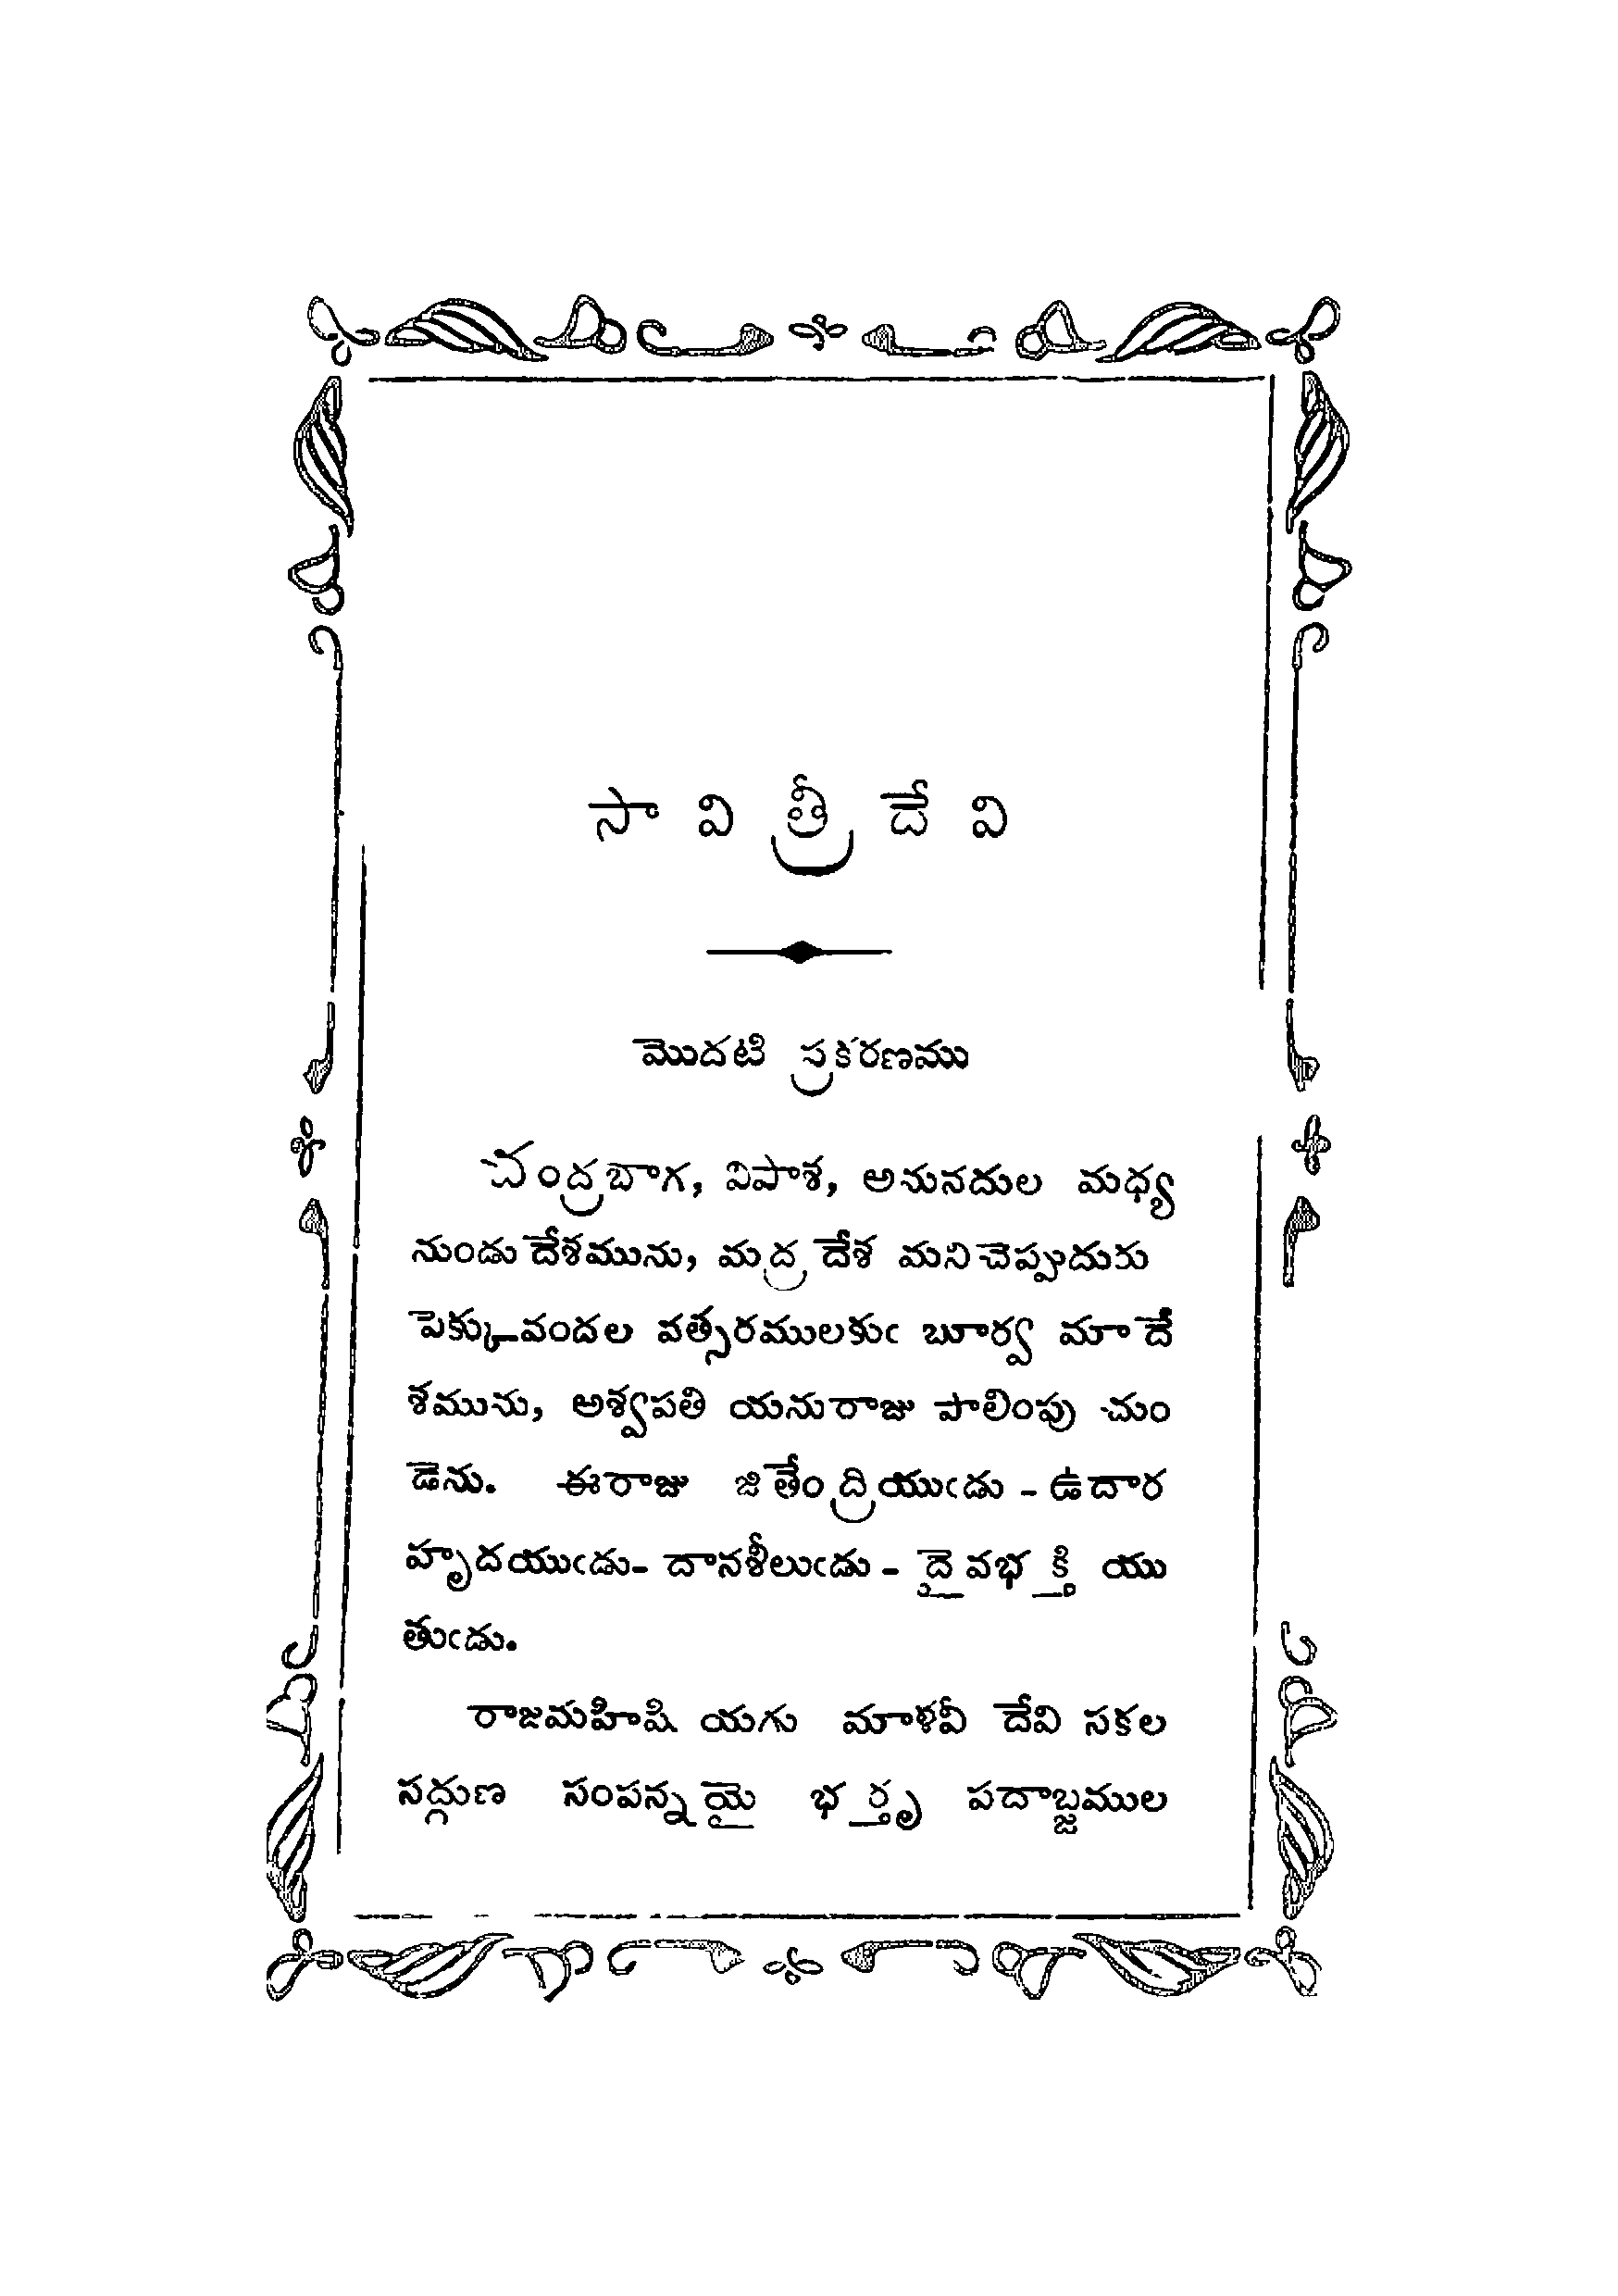 సావిత్రీదేవి
మొదటి ప్రకరణము
చంద్రబాగ, విపాశ, అనునదుల మధ్య
నుండుదేశమును, మద్రదేశ మనిచెప్పుదురు
పెక్కువందల వత్సరములకుఁ బూర్వ మాదే
శమును, అశ్వపతి యనురాజు పాలింపు చుం
డెను. ఈరాజు జితేంద్రియుఁడు - ఉదార
హృదయుఁడు- దానశీలుఁడు - దైవభక్తి యు
తుఁడు.
రాజమహిషి యగు మాళవీ దేవి సకల
సద్గుణ సంపన్నయై భర్తృ పదాబ్జముల